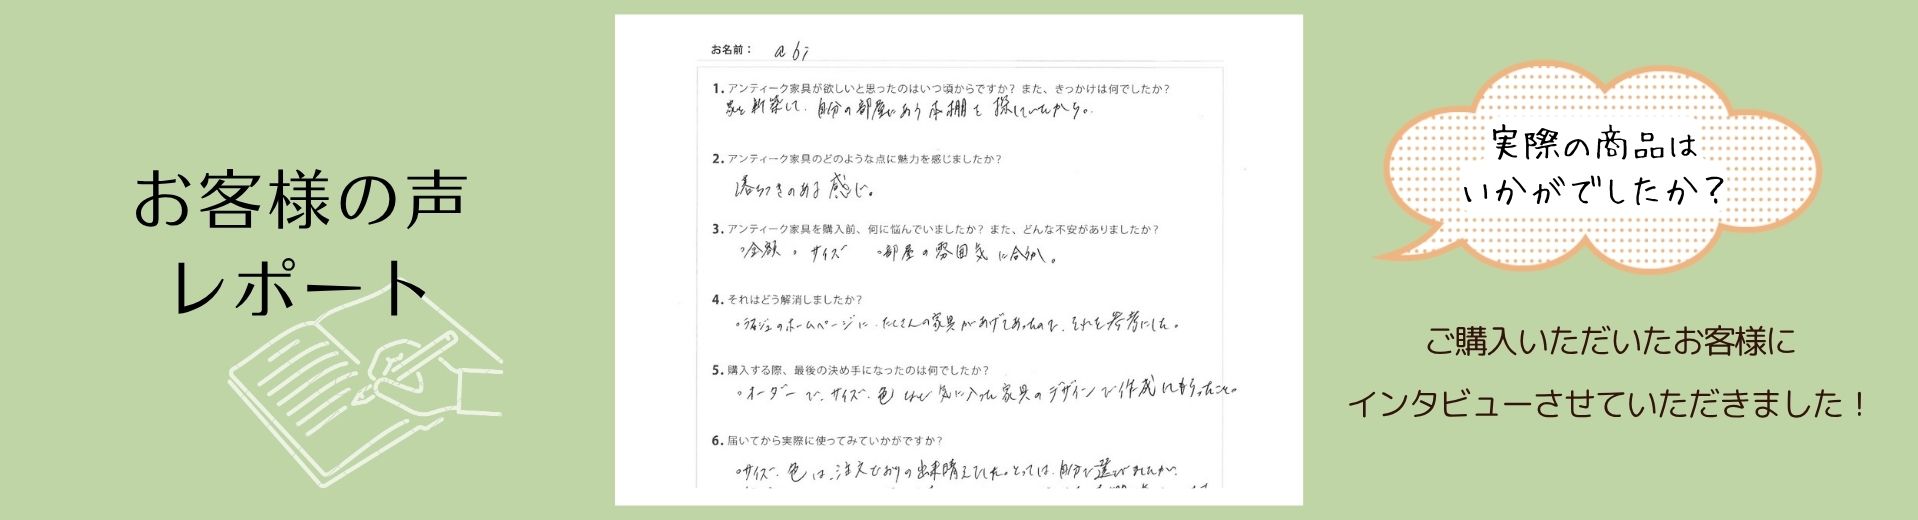 お客様の声
レポート
お名前： abi
1. アンティーク家具が欲しいと思ったのはいつ頃からですか？また、きっかけは何でしたか？
家を新築して、自分の部屋に合う本棚を探していたから。
2. アンティーク家具のどのような点に魅力を感じましたか？
落ちつきのある感じ。
3. アンティーク家具を購入前、何に悩んでいましたか？また、どんな不安がありましたか？
・金額 ・サイズ ・部屋の雰囲気に合うか。
4. それはどう解消しましたか？
・ラフジュのホームページに、たくさんの家具があげてあったので、それを参考にした。
5. 購入する際、最後の決め手になったのは何でしたか？
・オーダーで、サイズ、色など気に入った家具のデザインで作成してもらったこと。
6. 届いてから実際に使ってみていかがですか？
・サイズ、色は、注文どおりの出来晴えでした。とっては、自分で選びましたが、
実際の商品は
いかがでしたか？
ご購入いただいたお客様に
インタビューさせていただきました！